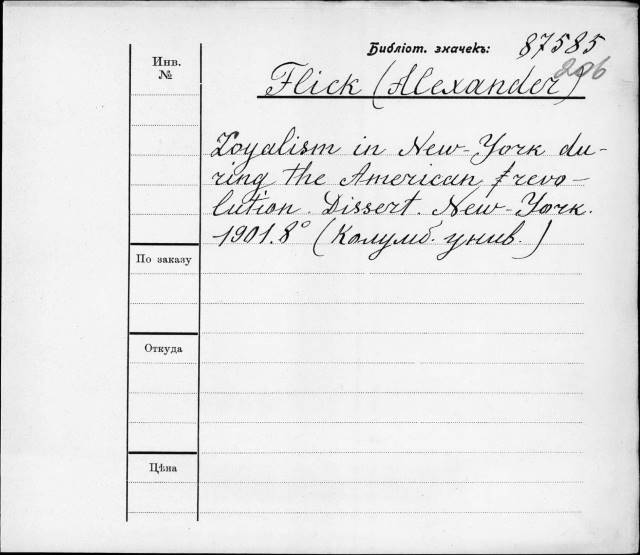 Инв.
№
Библіот. значекъ: 87585
206
Flick (Alexander)
Loyalism in New-York du-
ring the American revo-
lution. Dissert. New-York.
1901. 8° (Колумб. унив.)
По заказу
Откуда
Цѣна